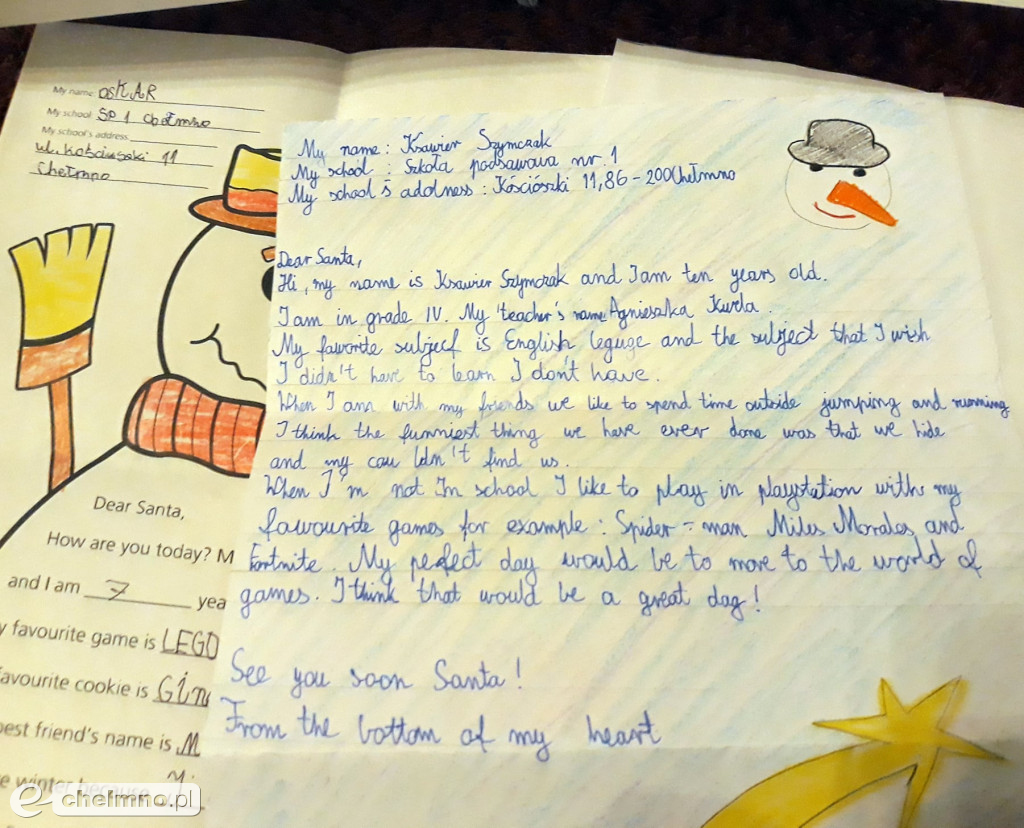 My name: OSKAR
My school: SP 1 Chełmno
My school's address
ul. Kościuszki 11
Chełmno
Dear Santa,
How are you today? M
and I am 7 yea
y favourite game is LEGO
favourite cookie is Gin
best friend's name is M
e winter because
My name: Ksawier Szymczak
My school: Szkoła podsawowa nr. 1
My school s addness: Kóściószki 11, 86-200 Chełmno
Dear Santa,
Hi, my name is Ksawier Szymczak and I am ten years old.
I am in grade IV. My teacher's name Agnieszka Kurda.
My faworite subject is English leguge and the subject that I wish
I didn't have to learn I don't have.
When I am with my friends we like to spend time outside jumping and running
I think the funniest thing we have ever done was that we hide
and my couldn't find us.
When I'm not In school I like to play in playstation with my
fawourite games for example: Spider-man Miles Morales and
Fortnite. My perfect day would be to move to the world of
games. I think that would be a great day!
See you soon Santa!
From the bottom of my heart
e-chelmno.pl